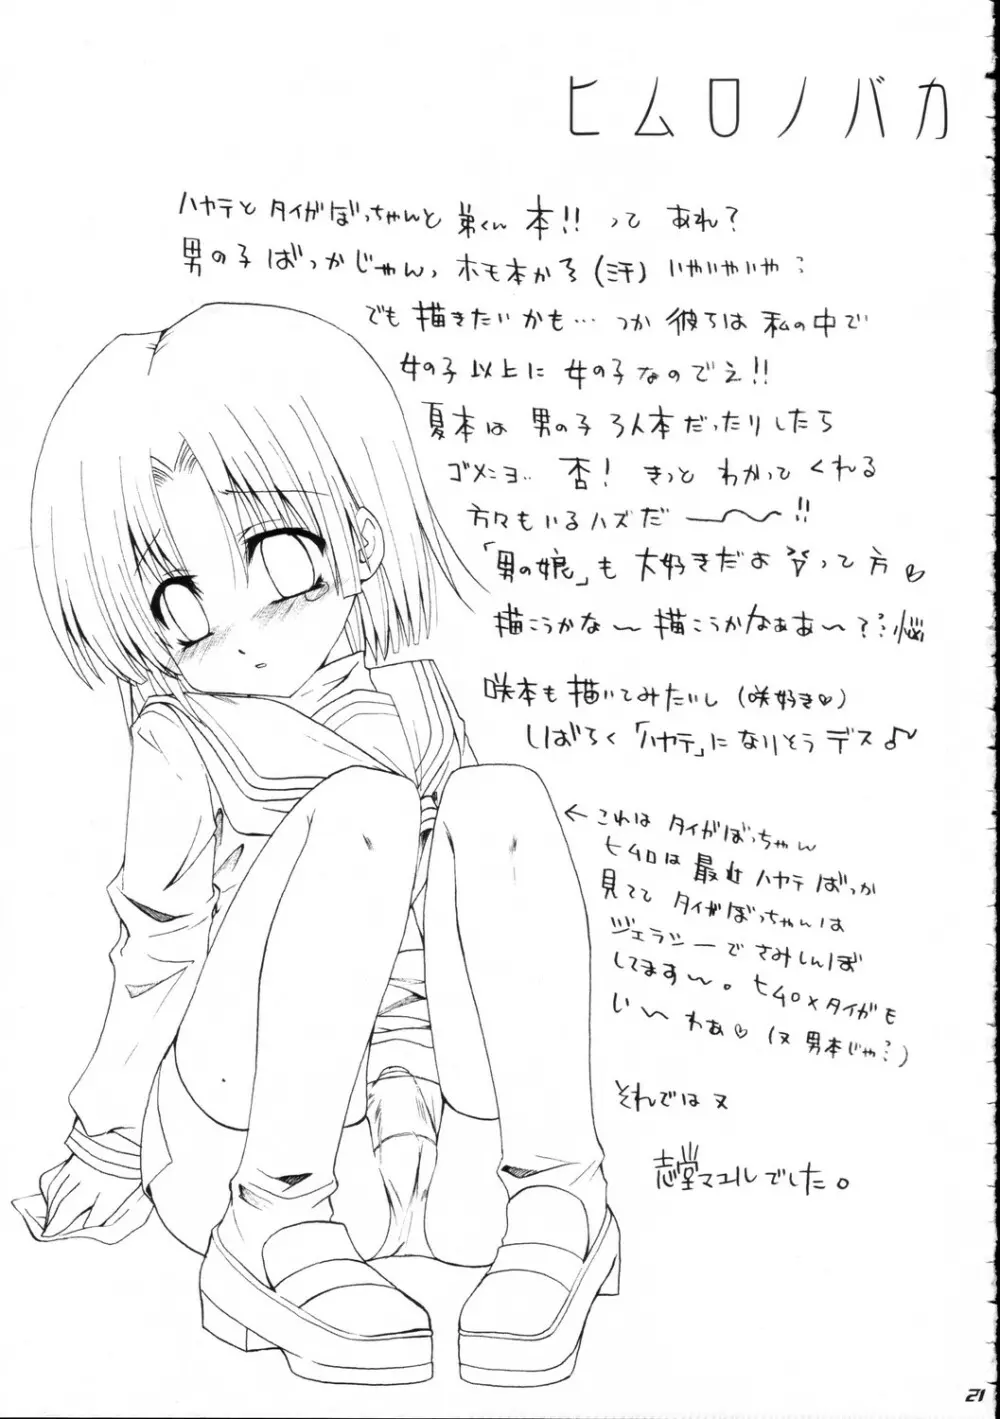 ヒムロノバカ
ハヤテとタイガぼっちゃんと弟くん本!!ってあれ?
男の子ばっかじゃんっホモ本かそ(ミ汗)いやいやいや
でも描きたいかも…つか彼らは私の中で
女の子以上に女の子なのでえ!!
夏本は男の子3人本だったりしたら
ゴメーヨ 杏!きっとわかってくれる
方々もいるハズだ〜〜!!
「男の娘」も大好きだよって方♡
描こうかな〜描こうかなぁあ〜?悩
咲本も描いてみたいし(咲好き♡)
しばらく「ハヤテ」になりそうデス♪
←これはタイガぼっちゃん
ヒムロは最近ハヤテばっか
見ててタイガぼっちゃんは
ジェラシーでさみしんぼ
してます〜。ヒムロ×タイガも
い〜わぁ♡(又男本じゃ?)
それでは又
志堂マユルでした。
21